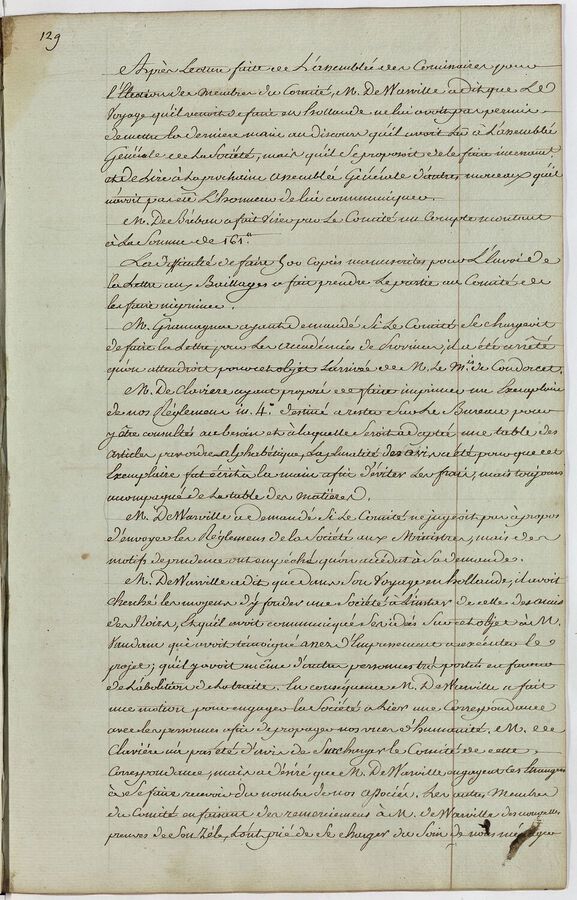 129
Après Lecture faite de L'assemblée des Commissaires pour
l'Election des membres du Comité, M. De Warville a dit que Le
Voyage qu'il venoit de faire en hollande ne lui avoit pas permis
de mettre la derniere main au discours qu'il avoit Lu à L'assemblée
Générale de La Société, mais qu'il se proposoit de le faire incessant.
et de Lire à La prochaine assemblée Générale d'autres morceaux qu'il
n'avoit pas eté L'honneur de lui communiquer.
M. De Bréban a fait viser par Le Comité un Compte montant
à La Somme de 161.tt
La difficulté de faire 500 Copies manuscrites pour L'Envoi de
la Lettre aux Bailliages a fait prendre Le parti au Comité de
les faire imprimer.
M. Gramagnac ayant demandé Si Le Comité Se chargeoit
de faire la Lettre pour Les Académies de Province, il a été arrêté
qu'on attendroit pour cet objet L'arrivée de M. Le M.is de Condorcet.
M. De Claviere ayant proposé de faire imprimer un Exemplaire
de nos Réglemens in 4.° destiné a rester Sur Le Bureau pour
y être consultés au besoin et à laquelle Seroit adaptée une table des
articles par ordre alphabétique, La pluralité des avis a été pour que cet
Exemplaire fut écrit à la main afin d'éviter Les frais, mais toujours
accompagné de La table des matières.
M. De Warville a demandé Si Le Comité ne jugeoit pas à propos
d'envoyer les Réglemens de la Société aux Ministres, mais des
motifs de prudence ont empêché qu'on accédat à Sa demande.
M. De Warville a dit que dans Son Voyage en hollande, il avoit
cherché les moyens d'y fonder une Société à L'instar de celle des amis
des Noirs, et qu'il avoit communiqué Ses idées Sur cet objet à M.
Vandam qui avoit témoigné assez d'Empressement à exécuter le
projet; qu'il y avoit même d'autres personnes très portées en faveur
de L'abolition de La traite. En conséquence M. De Warville a fait
une motion pour engager La Société à Lier une Correspondance
avec les personnes afin de propager nos vues d'humanité. M. de
Claviére n'a pas été d'avis de Surcharger le Comité de cette
Correspondance, mais a désiré que M. De Warville engageat ces Etrangers
à Se faire recevoir du nombre de nos associés. Les autres Membres
du Comité en faisant des remerciemens à M. de Warville des nouvelles
preuves de Son Zéle, L'ont prié de Se charger du Soin de nous ménager